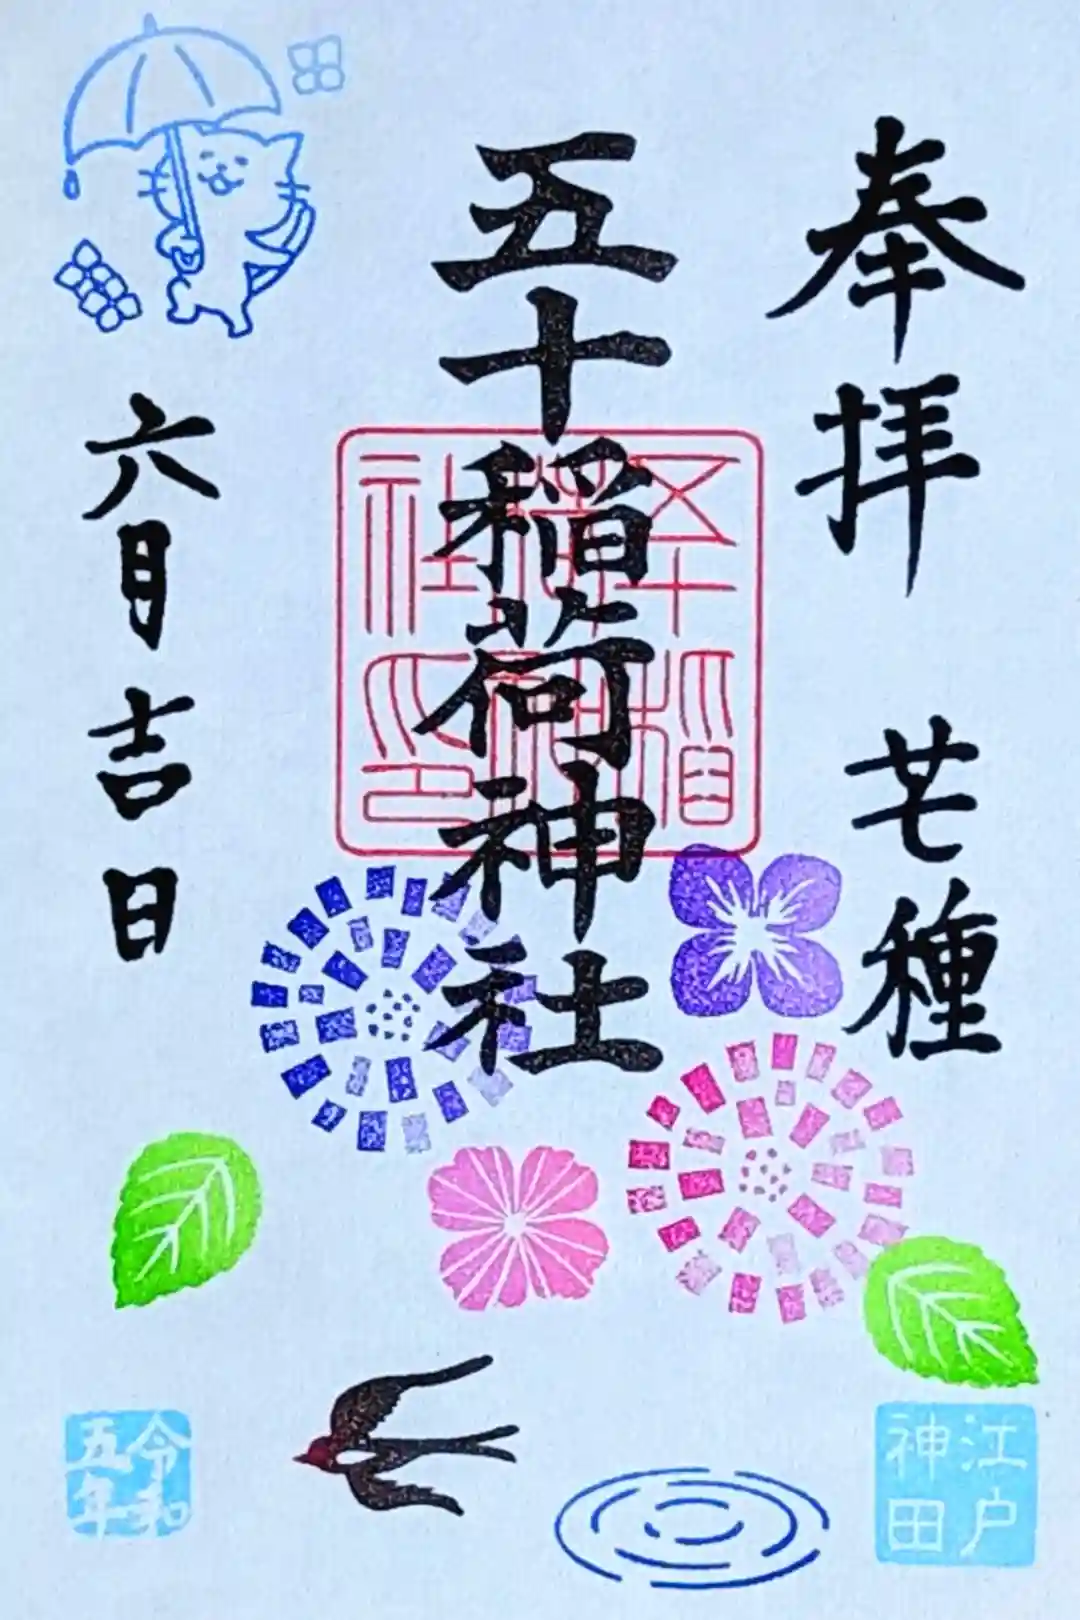 奉拝 芒種
五十稲荷神社
五十稲荷神社印
六月吉日
江戸
神田
令和
五年